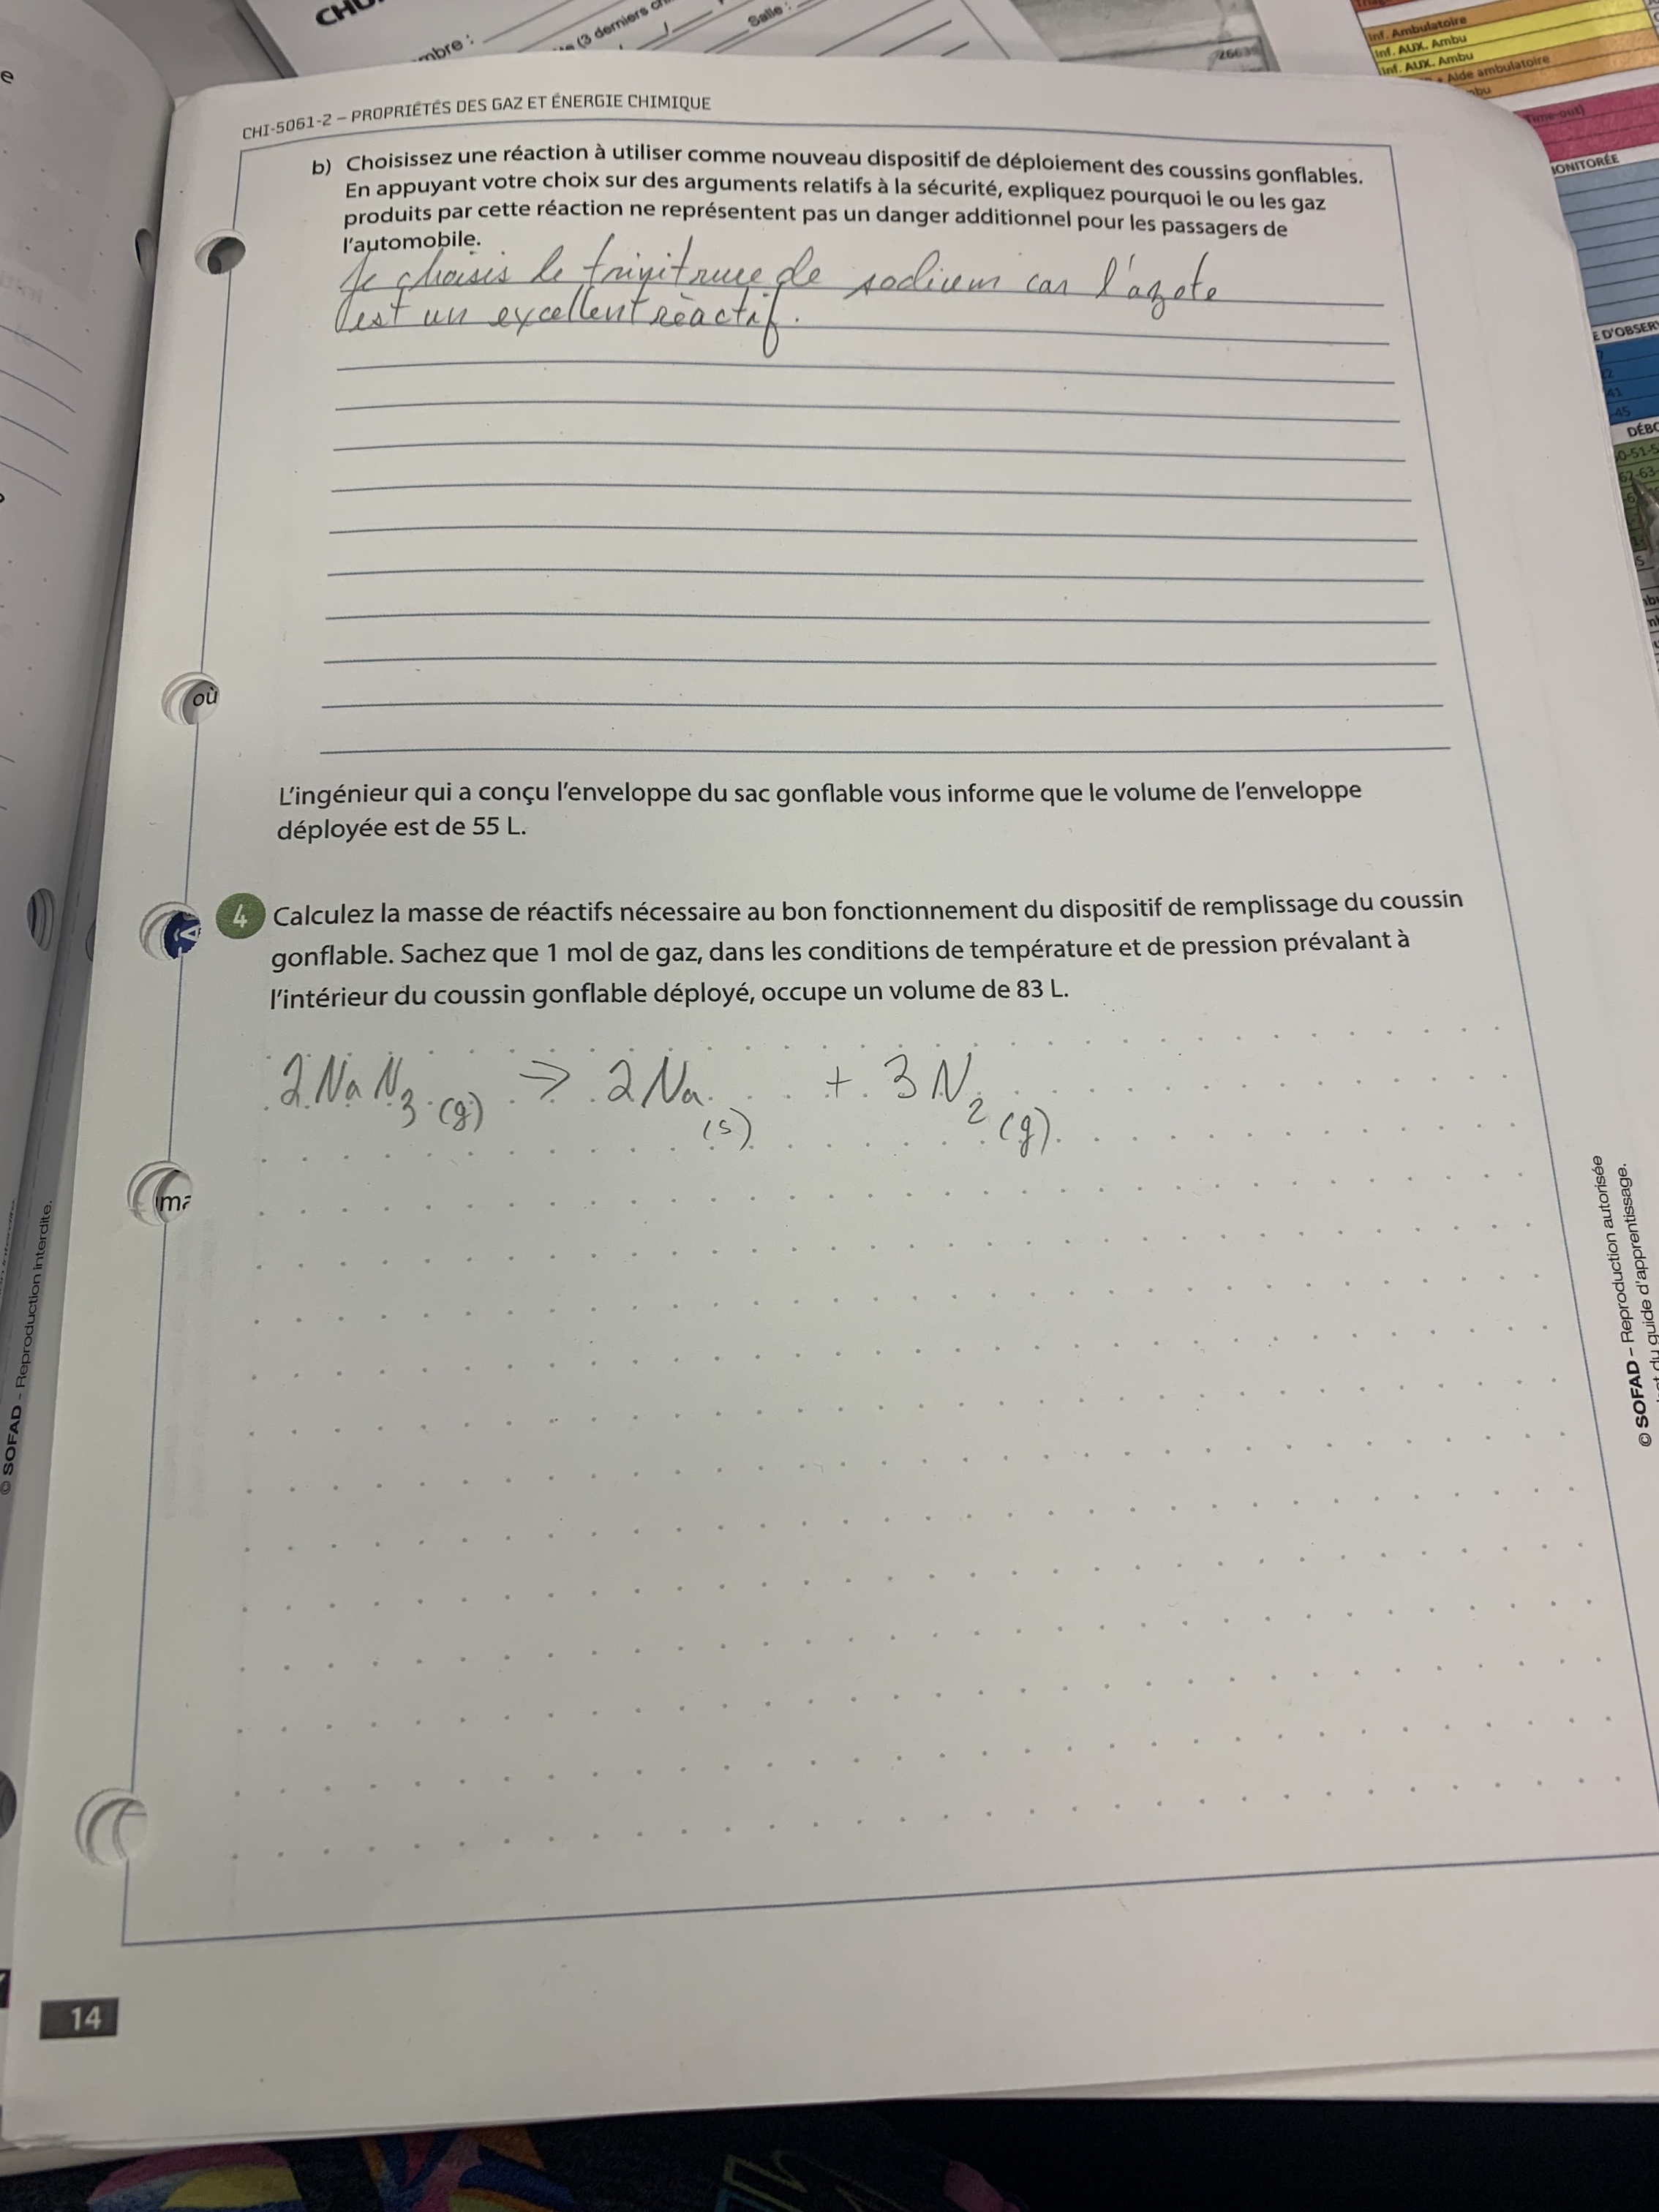 CHI-5061-2 – PROPRIÉTÉS DES GAZ ET ÉNERGIE CHIMIQUE
b) Choisissez une réaction à utiliser comme nouveau dispositif de déploiement des coussins gonflables.
En appuyant votre choix sur des arguments relatifs à la sécurité, expliquez pourquoi le ou les gaz
produits par cette réaction ne représentent pas un danger additionnel pour les passagers de
l'automobile.
Je choisis le de sodium car l'azote
est un excellent réactif.
L'ingénieur qui a conçu l'enveloppe du sac gonflable vous informe que le volume de l'enveloppe
déployée est de 55 L.
4 Calculez la masse de réactifs nécessaire au bon fonctionnement du dispositif de remplissage du coussin
gonflable. Sachez que 1 mol de gaz, dans les conditions de température et de pression prévalant à
l'intérieur du coussin gonflable déployé, occupe un volume de 83 L.
2NaN3(g) → 2Na(s) + 3N2(g)
14
où
© SOFAD – Reproduction autorisée
© SOFAD - Reproduction interdite.
mbre :
(3 derniers
Salle :
Inf. Ambulatoire
Inf. AUX. Ambu
Inf. AUX. Ambu
Aide ambulatoire